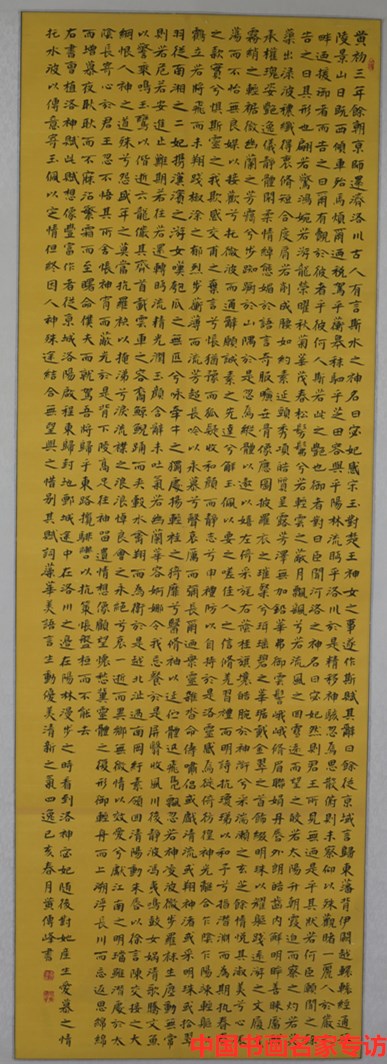 黄初三年餘朝京師還濟洛川古人有言斯水之神名曰宓妃感宋玉對楚王神女之事遂作斯賦其辭曰餘從京域言歸東藩背伊闕越轘轅經通谷
陵景山日既西傾車殆馬煩爾迺稅駕乎蘅皋秣駟乎芝田容與乎陽林流眄乎洛川於是精移神駭忽焉思散俯則未察仰以殊觀睹一麗人於巖之
畔迺援御者而告之曰爾有覿於彼者乎彼何人斯若此之艷也御者對曰臣聞河洛之神名曰宓妃然則君王所見無迺是乎其狀若何臣願聞之余
告之曰其形也翩若驚鴻婉若游龍榮曜秋菊華茂春松髣髴兮若輕雲之蔽月飄飖兮若流風之回雪遠而望之皎若太陽升朝霞迫而察之灼若芙
蕖出淥波穠纖得衷脩短合度肩若削成腰如約素延頸秀項皓質呈露芳澤無加鉛華弗御雲髻峨峨脩眉聯娟丹唇外朗皓齒內鮮明眸善睞靨輔
承權瑰姿艷逸儀靜體閑柔情綽態媚於語言奇服曠世骨像應圖披羅衣之璀粲兮珥瑤碧之華琚戴金翠之首飾綴明珠以耀軀踐遠遊之文履曳
霧綃之輕裾微幽蘭之芳藹兮步踟躕於山隅於是忽焉縱體以遨以嬉左倚采旄右蔭桂旗攘皓腕於神滸兮采湍瀨之玄芝餘情悅其淑美兮心振
蕩而不怡無良媒以接歡兮托微波而通辭願誠素之先達兮解玉佩以要之嗟佳人之信脩羌習禮而明詩抗瓊珶以和予兮指潛淵而為期執眷眷
之款實兮懼斯靈之我欺感交甫之棄言兮悵猶豫而狐疑收和顏而靜志兮申禮防以自持於是洛靈感焉徙倚彷徨神光離合乍陰乍陽竦輕軀以
鶴立若將飛而未翔踐椒涂之郁烈步蘅薄而流芳超長吟以永慕兮聲哀厲而彌長爾迺眾靈雜遝命儔嘯侶或戲清流或翔神渚或采明珠或拾翠
羽從南湘之二妃攜漢濱之游女嘆匏瓜之無匹兮詠牽牛之獨處揚輕袿之猗靡兮翳脩袖以延佇體迅飛鳧飄忽若神凌波微步羅襪生塵動無常
則若危若安進止難期若往若還轉眄流精光潤玉顏含辭未吐氣若幽蘭華容婀娜令我忘餐於是屏翳收風川後靜波馮夷鳴鼓女媧清歌騰文魚
以警乘鳴玉鸞以偕逝六龍儼其齊首載雲車之容裔鯨鯢踊而夾轂水禽翔而為衛於是越北沚過南岡紆素領回清陽動朱唇以徐言陳交接之大
綱恨人神之道殊兮怨盛年之莫當抗羅袂以掩涕兮淚流襟之浪浪悼良會之永絕兮哀一逝而異鄉無微情以效愛兮獻江南之明璫雖潛處於太
陰長寄心於君王忽不悟其所舍悵神宵而蔽光於是背下陵高足往神留遺情想像顧望懷愁冀靈體之復形御輕舟而上溯浮長川而忘返思綿綿
而增慕夜耿耿而不寐沾繁霜而至曙命僕夫而就駕吾將歸乎東路攬騑轡以抗策悵盤桓而不能去
右書曹植洛神賦此賦想像豐富作者從京城洛陽啟程東歸封地鄄城途中在洛川之邊在陽林漫步之時看到洛神宓妃隨後對她產生愛慕之情
托水波以傳意寄玉佩以定情但終因人神殊途結合無望與之惜別其賦詞藻華美語言生動優美清新之氣四逸己亥春月黃傳峰書
中国书画名家专访